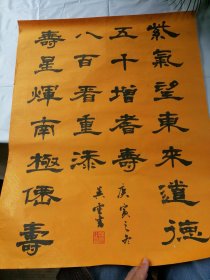 紫氣望東來道德
五千增耆壽
八百看重添
壽星輝南極僊壽
庚寅之冬
書